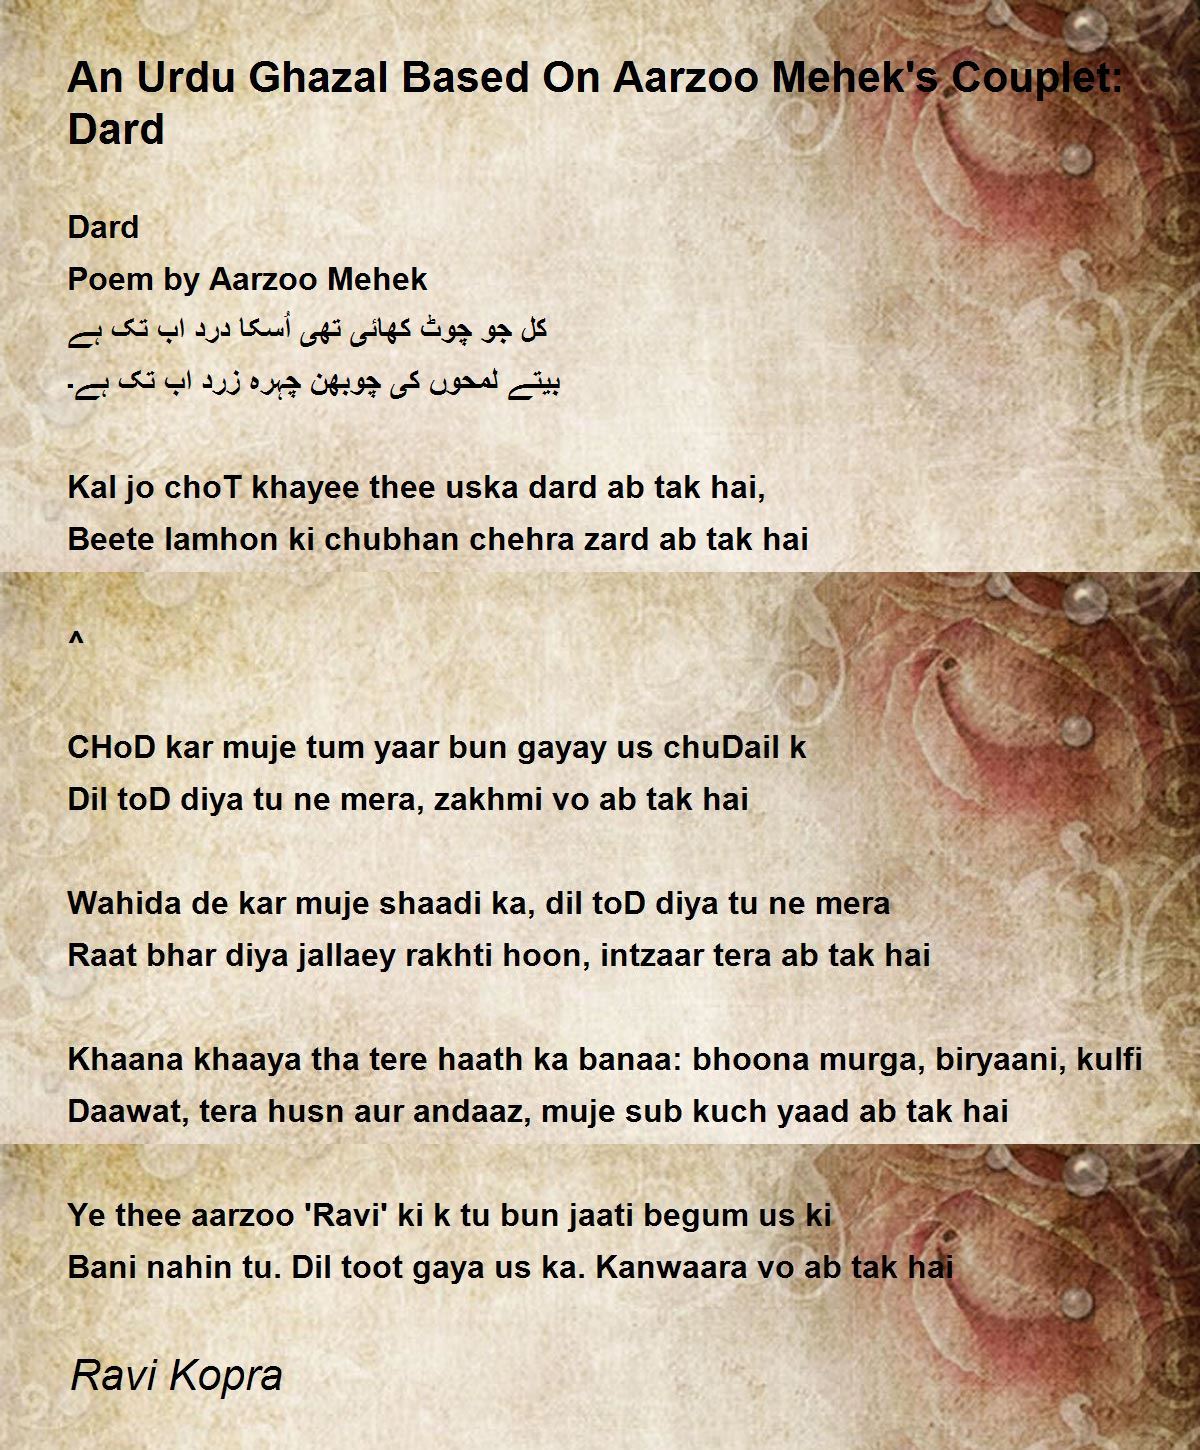 An Urdu Ghazal Based On Aarzoo Mehek's Couplet:
Dard
Dard
Poem by Aarzoo Mehek
کل جو چوٹ کھائی تھی اُسکا درد اب تک ہے
بیتے لمحوں کی چوبھن چہرہ زرد اب تک ہے۔
Kal jo choT khayee thee uska dard ab tak hai,
Beete lamhon ki chubhan chehra zard ab tak hai
^
CHoD kar muje tum yaar bun gayay us chuDail k
Dil toD diya tu ne mera, zakhmi vo ab tak hai
Wahida de kar muje shaadi ka, dil toD diya tu ne mera
Raat bhar diya jallaey rakhti hoon, intzaar tera ab tak hai
Khaana khaaya tha tere haath ka banaa: bhoona murga, biryaani, kulfi
Daawat, tera husn aur andaaz, muje sub kuch yaad ab tak hai
Ye thee aarzoo 'Ravi' ki k tu bun jaati begum us ki
Bani nahin tu. Dil toot gaya us ka. Kanwaara vo ab tak hai
Ravi Kopra